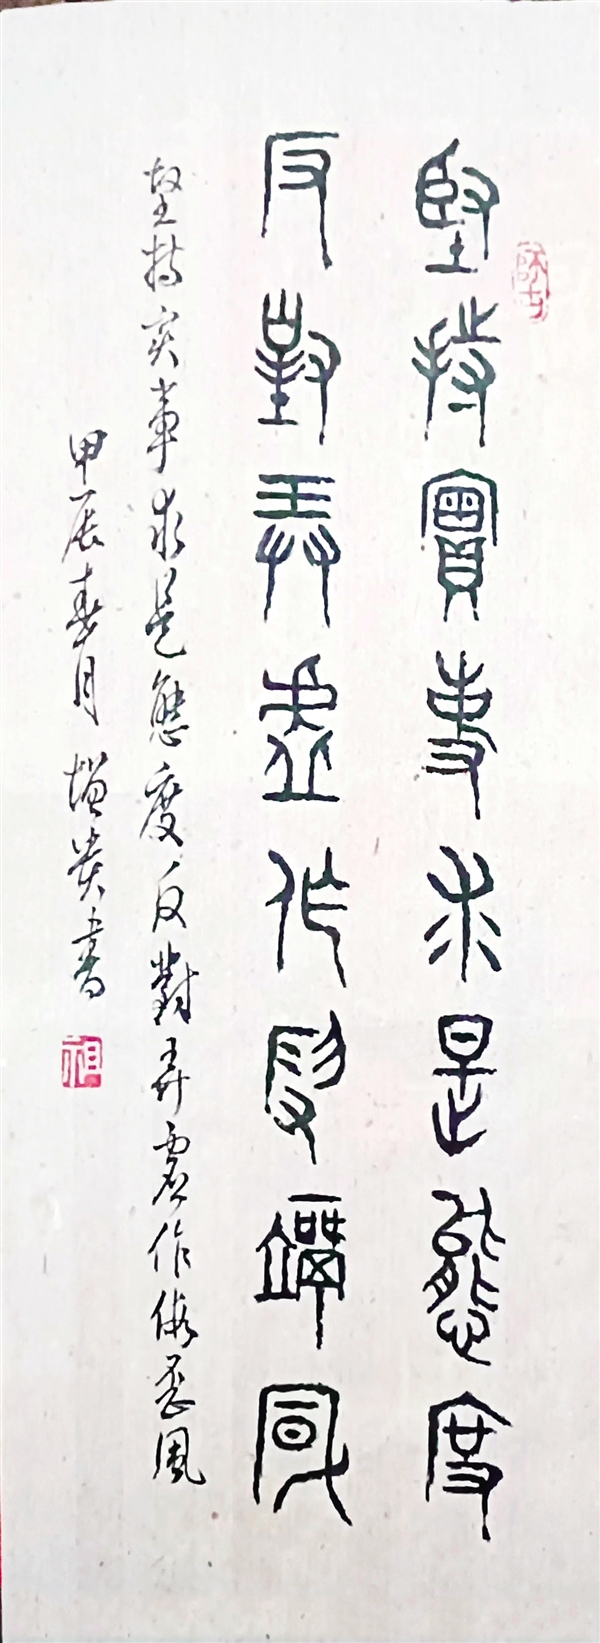 堅持實事求是態度
反對弄虛作假歪風
堅持實事求是態度反對弄虛作假歪風
甲辰春月 增貴書